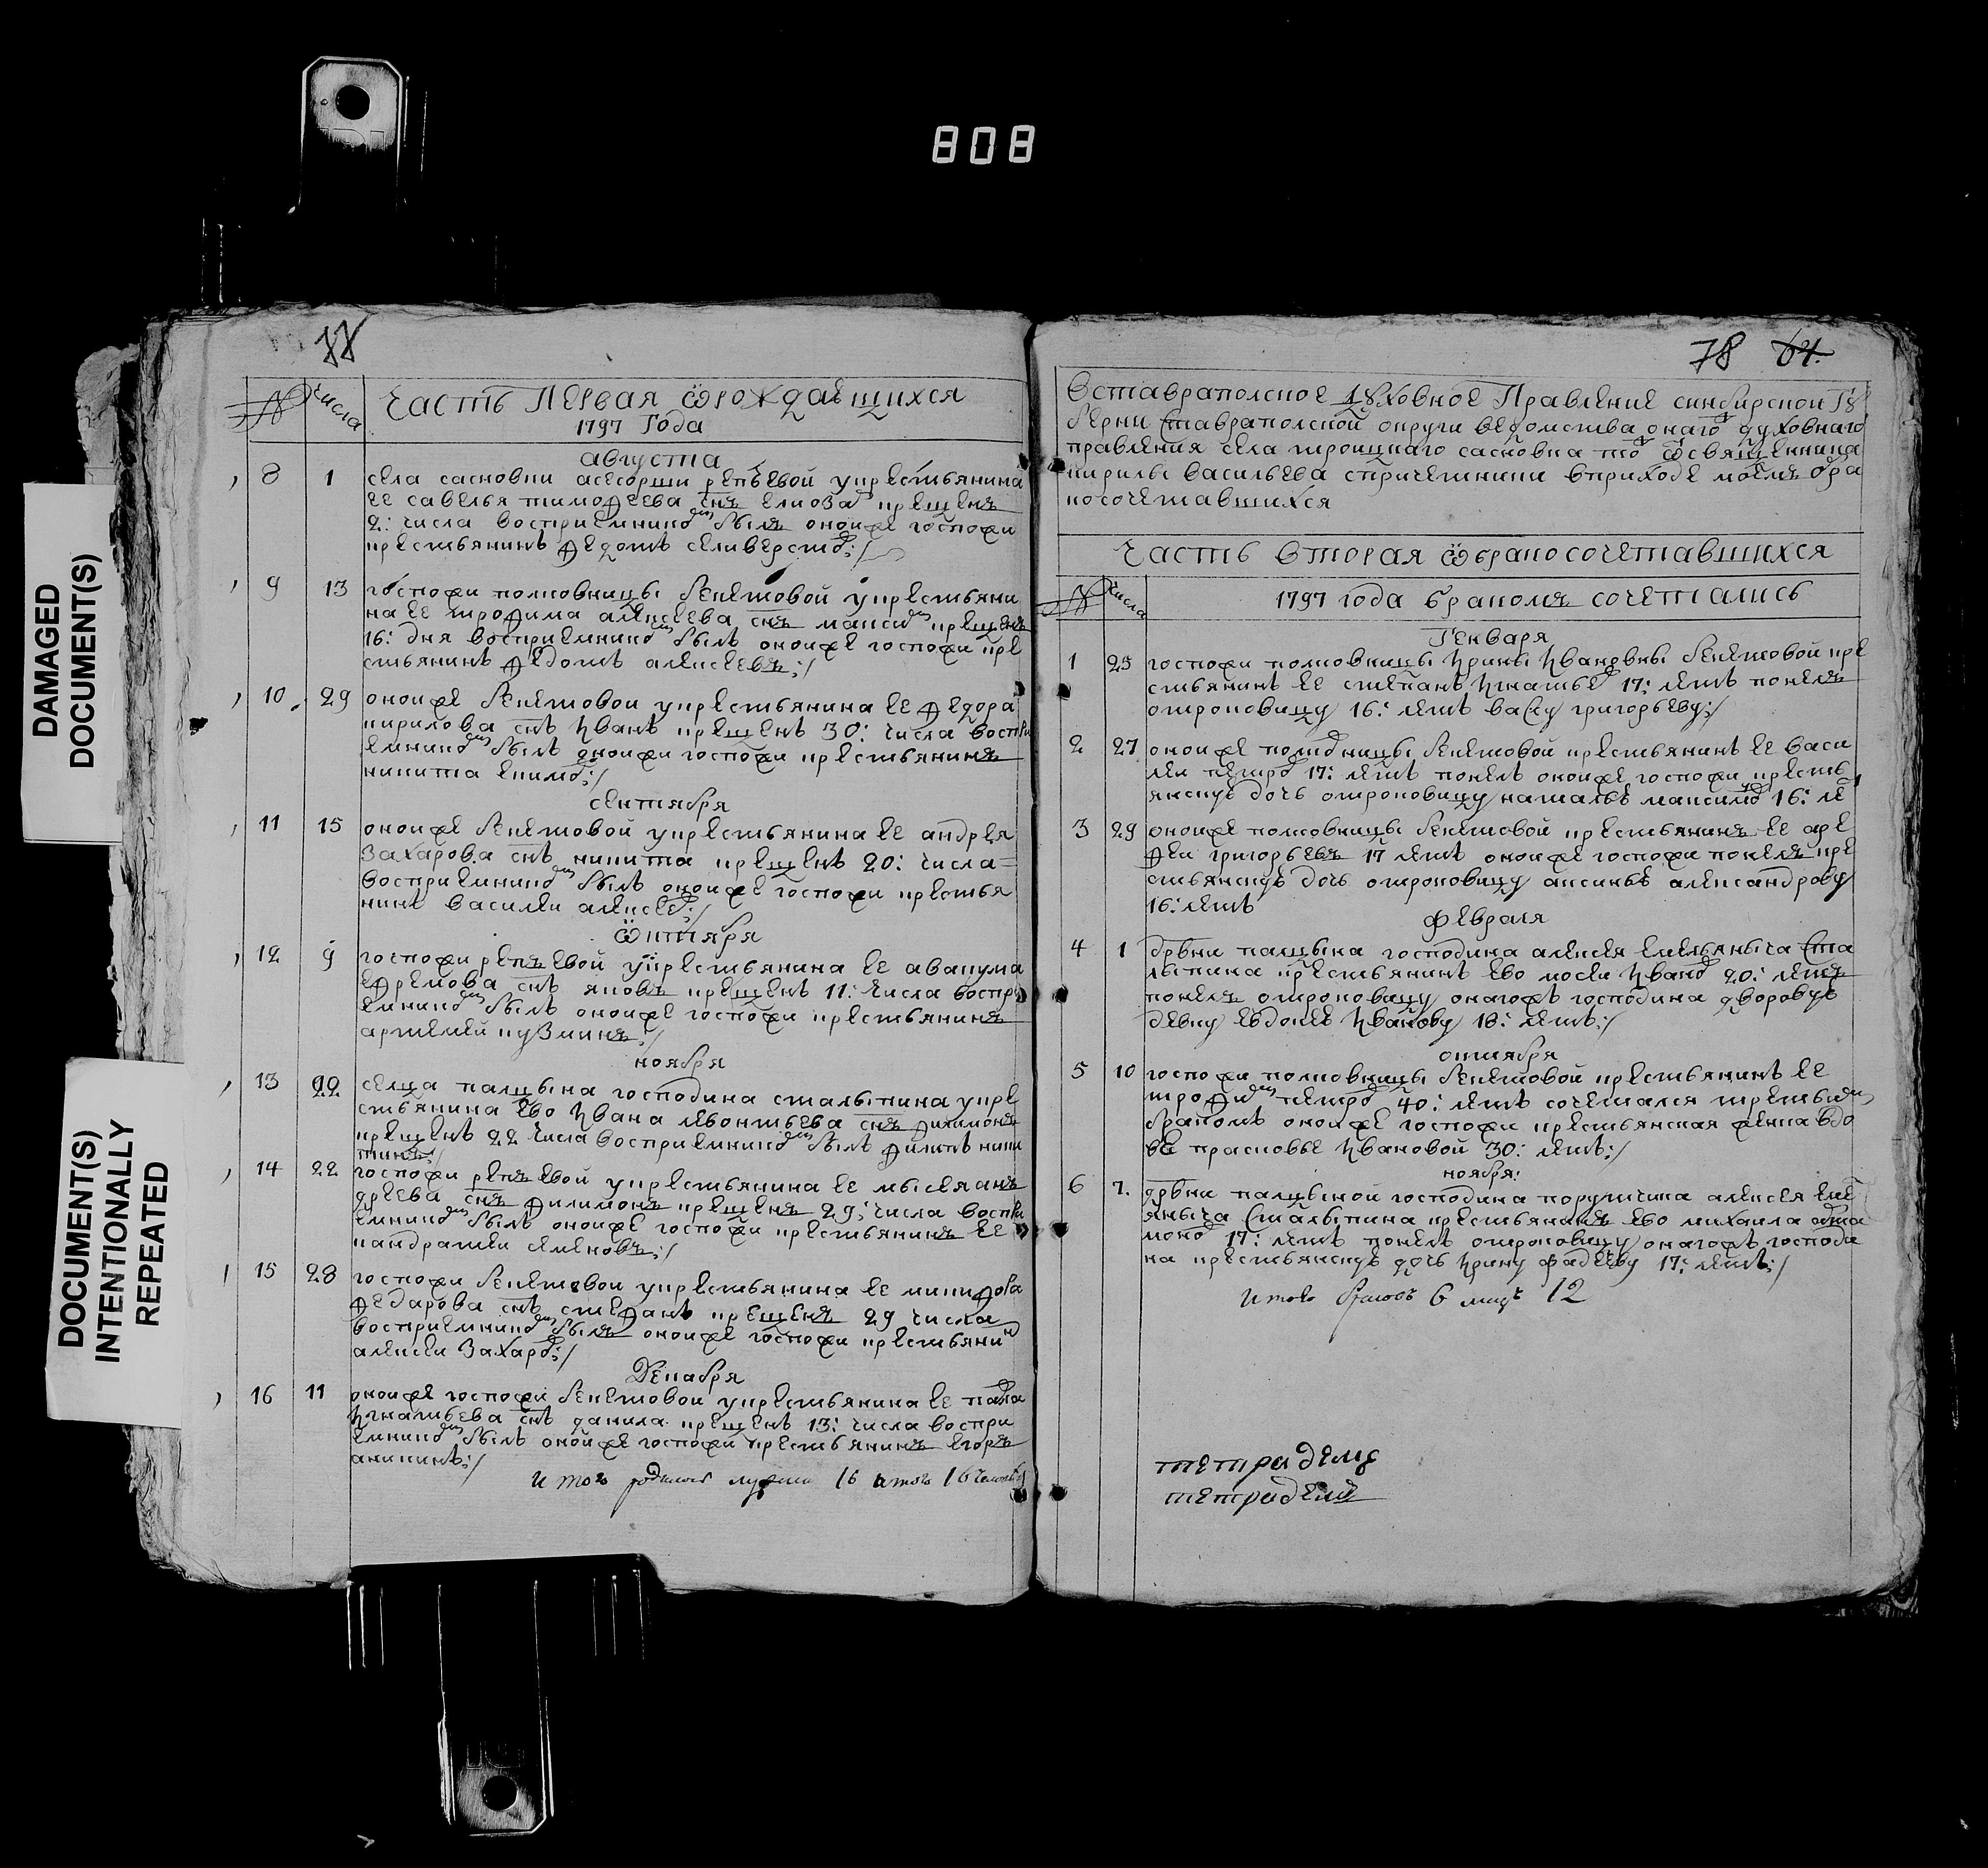 808
DAMAGED
DOCUMENT(S)
DOCUMENT(S)
INTENTIONALLY
REPEATED
77
№ числа Часть Первая ѿрождающихся
1797 Года
августа
8 1 села сасновки асесорши репьевой у крестьянина
ее савелья тимофеева снъ крещенъ
2: числа восприемникомъ былъ оноиже госпожи
крестьянинъ федотъ селиверстов:/
9 13 госпожи полковницы бекетовой у крестьяни
на ее трофима алексеева снъ максимъ крещенъ
16: дня восприемникомъ былъ оноиже госпожи кре
стьянинъ федотъ алексеевъ:/
10 29 оноиже бекетовои у крестьянина ее федора
кирилова снъ иванъ крещенъ 30: числа воспри
емникомъ былъ оноижи госпожи крестьянинъ
никита екимов:/
сентября
11 15 оноиже бекетовой у крестьянина ее андрея
захарова снъ никита крещенъ 20: числа
восприемникомъ былъ оноиже госпожи крестья
нинъ василеи алексеев:/
ѿктября
12 9 госпожи репьевой у крестьянина ее авакума
ефремова снъ яковъ крещенъ 11: числа воспри
емникомъ былъ оноиже госпожи крестьянинъ
артемеи кузминъ:/
ноября
13 22 селца палцына господина сталыпина у кре
стьянина ево ивана левонтьева снъ филимонъ
крещенъ 22 числа восприемникомъ былъ филипъ ники
тинъ:/
14 22 госпожи репьевой у крестьянина ее мысея анъ
дреева снъ филимонъ крещенъ 29: числа воспри
емникомъ былъ оноиже госпожи крестьянинъ ее
кандратеи семеновъ:/
15 28 госпожи бекетовои у крестьянина ее никифора
федарова снъ стефанъ крещенъ 29 числа
восприемникомъ былъ оноиже госпожи крестьянин
алексеи захаров:/
Декабря
16 11 оноиже госпожи бекетовой у крестьянина ее павла
игнатьева снъ данила крещенъ 13: числа воспри
емникомъ былъ оноиже госпожи крестьянинъ егоръ
аникинъ:/
итого 16 итого 16
78 64.
Вставраполское духовное Правление синбирской Гу
берни Ставраполской округи ведомства онаго духовнаго
правления села троицкаго сасновка то ѿ священника
кирилы васильева спричетники вприходе моемъ обра
косочетавшихся
Часть вторая ѿбракосочетавшихся
№ числа 1797 года бракомъ сочетались
Генваря
1 25 госпожи полковницы ирины ивановны бекетовой кре
стьянинъ ее степанъ игнатьев 17: летъ понелъ
отроковицу 16: летъ васу григорьеву:/
2 27 оноиже полковницы бекетовой крестьянинъ ее васи
леи петров 17: летъ понелъ оноиже госпожи кресть
янскую дочь отроковицу наталью максимову 16: ле
3 29 оноиже полковницы бекетовой крестьянинъ ее аре
феи григорьевъ 17 летъ оноиже госпожи понелъ кре
стьянскую дочь отроковицу аксинью александрову
16: летъ
февраля
4 1 дрвни палцына господина алексея емельяныча Ста
лыпина крестьянинъ ево мосеи иванов 20: летъ
понелъ отроковицу онагожъ господина дворовую
девку евдокею иванову 18: летъ:/
октября
5 10 госпожи полковницы бекетовой крестьянинъ ее
трофимъ петров 40: летъ сочетался третьимъ
бракомъ оноиже госпожи крестьянская женка вдо
ве прасковье ивановой 30: летъ:/
ноября:
6 7. дрвни палцыной господина порутчика алексея еме
яныча Сталыпина крестьянинъ ево михаила
17: летъ понелъ отроковицу онагожъ господи
на крестьянскую дочь ирину фадееву 17: летъ:/
Итого браковъ 6 лицъ 12